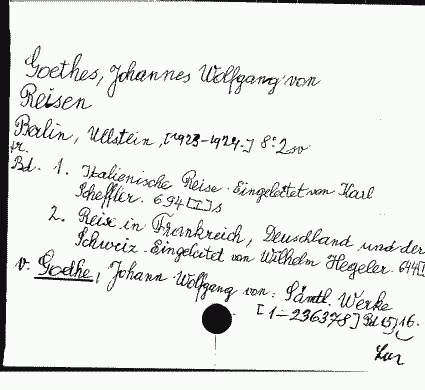 Goethes, Johannes Wolfgang von
Reisen
Berlin, Ullstein, [1923-1924.] 8: 2
Bd. 1. Italienische Reise. Eingeleitet von Karl
Scheffler. 694 [I] s
2. Reise in Frankreich, Deuschland und der
Schweiz. Eingeleitet von Wilhelm Hegeler. 644 [I
v. Goethe, Johann Wolfgang von: Sämtl. Werke
[1-236378] Bd 15, 16.